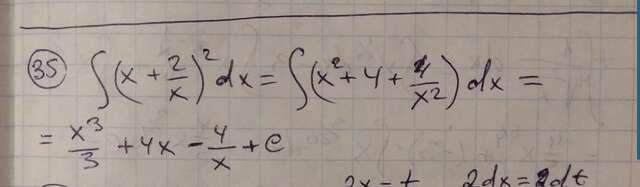 35 ∫(x + 2/x)² dx = ∫(x² + 4 + 4/x²) dx =
= x³/3 + 4x − 4/x + C
2x − t 2dx = 2dt